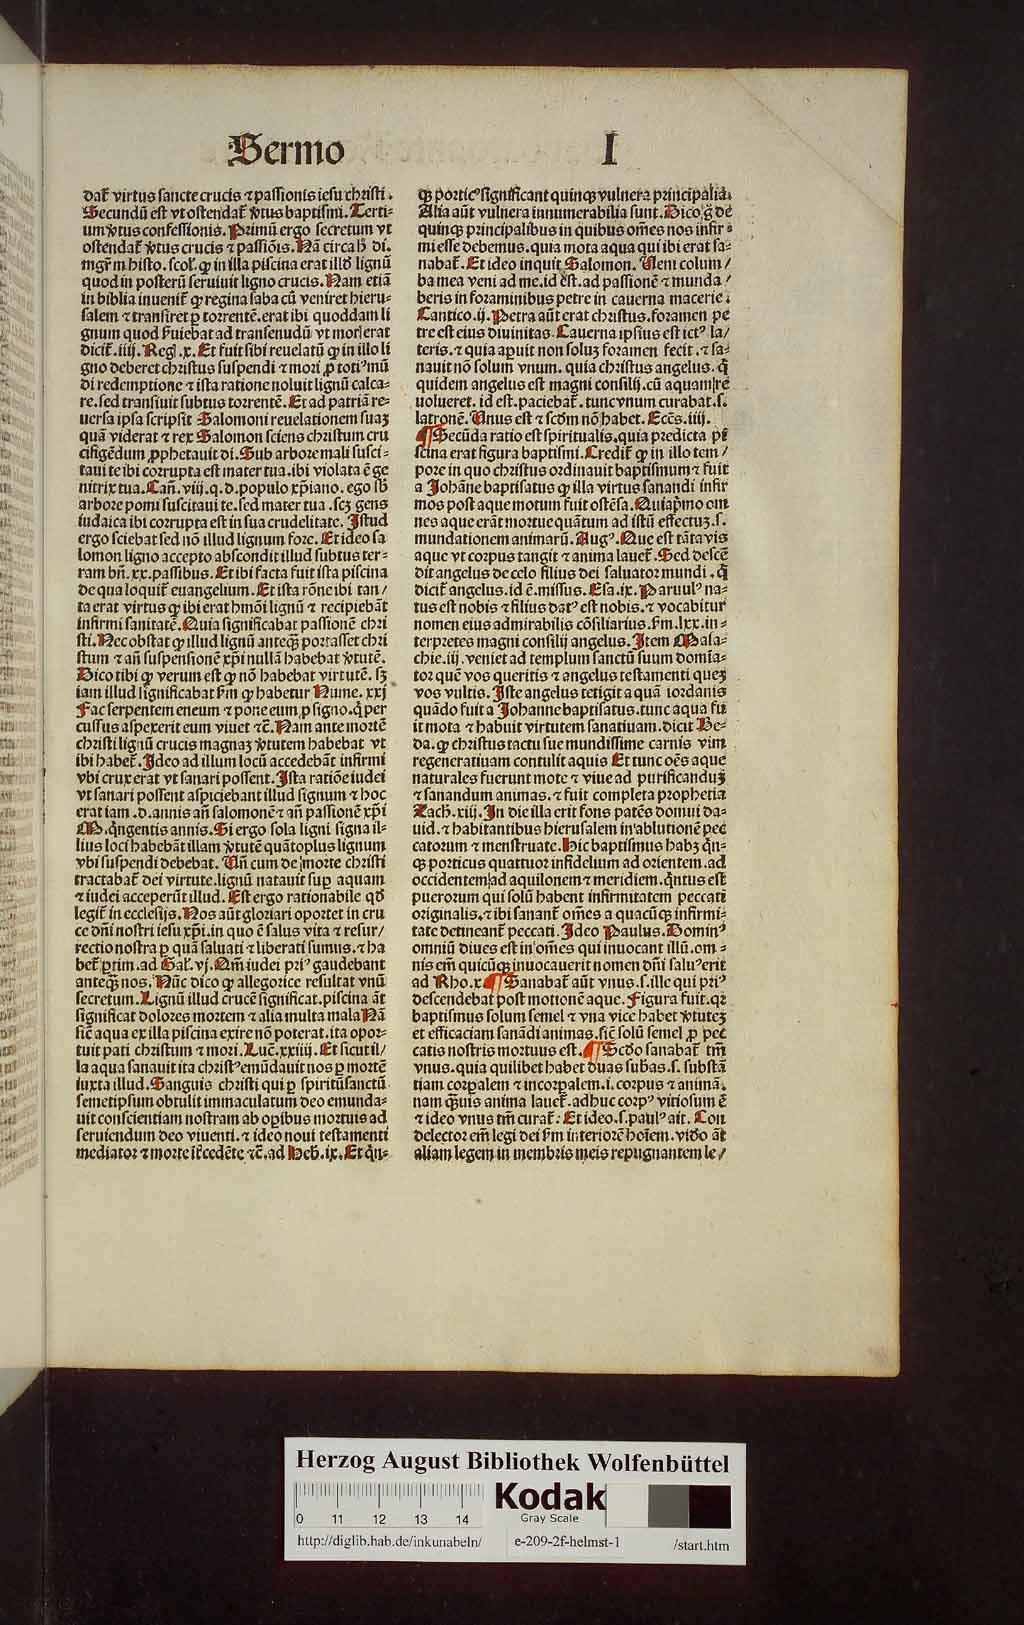 Sermo I
dat̃ virtus sancte crucis ⁊ passionis iesu christi.
Secundũ est vt ostendat̃ v̾tus baptismi. Terti-
um v̾tus confessionis. Primũ ergo secretum vt
ostendat̃ v̾tus crucis ⁊ passiõis. Nã circa h̾ di.
mgr̃ in histo. scol. ꝙ in illa piscina erat illð lignũ
quod in posterũ seruiuit ligno crucis. Nam etiã
in biblia inuenit̃ ꝙ regina saba cũ veniret hieru-
salem ⁊ transiret ꝑ torrentẽ. erat ibi quoddam li
gnum quod s̾uiebat ad transeundũ vt mos erat
dicit̃. iiij. Reg. x. Et fuit sibi reuelatũ ꝙ in illo li
gno deberet christus suspendi ⁊ mori ꝓ totiꝰ mũ
di redemptione ⁊ ista ratione noluit lignũ calca-
re. sed transiuit subtus torrentẽ. Et ad patriã re-
uersa ipsa scripsit Salomoni reuelationem suaꝫ
quã viderat ⁊ rex Salomon sciens christum cru
cifigẽdum ꝓphetauit di. Sub arbore mali susci-
taui te ibi corrupta est mater tua. ibi violata ẽ ge
nitrix tua. Cañ. viij. q. d. populo xp̃iano. ego sb̾
arbore pomi suscitaui te. sed mater tua. scꝫ gens
iudaica ibi corrupta est in sua crudelitate. Istud
ergo sciebat sed nõ illud lignum fore. Et ideo sa
lomon ligno accepto abscondit illud subtus ter-
ram bñ. xx. passibus. Et ibi facta fuit ista piscina
de qua loquit̃ euangelium. Et ista rõne ibi tan/
ta erat virtus ꝙ ibi erat hmõi lignũ ⁊ recipiebãt
infirmi sanitatẽ. Quia significabat passionẽ chri
sti. Nec obstat ꝙ illud lignũ anteqꝫ portasset chri
stum ⁊ añ suspensionẽ xp̃i nullã habebat v̾tutẽ.
Dico tibi ꝙ verum est ꝙ nõ habebat virtutẽ. sꝫ
iam illud significabat s̾m ꝙ habetur Nume. xxj
Fac serpentem eneum ⁊ pone eum ꝓ signo. q̃ per
cussus aspexerit eum viuet ⁊c̃. Nam ante mortẽ
christi lignũ crucis magnaꝫ v̾tutem habebat vt
ibi habet̃. Ideo ad illum locũ accedebãt infirmi
vbi crux erat vt sanari possent. Ista ratiõe iudei
vt sanari possent aspiciebant illud signum ⁊ hoc
erat iam. d. annis añ salomonẽ ⁊ añ passionẽ xp̃i
M. q̃ngentis annis. Si ergo sola ligni signa il-
lius loci habebãt illam v̾tutẽ quãtoplus lignum
vbi suspendi debebat. Uñ cum de morte christi
tractabat̃ dei virtute. lignũ natauit suꝑ aquam
⁊ iudei acceperũt illud. Est ergo rationabile qð
legit̃ in ecclesijs. Nos aũt gloriari oportet in cru
ce dñi nostri iesu xp̃i. in quo ẽ salus vita ⁊ resur/
rectio nostra ꝑ quã saluati ⁊ liberati sumus. ⁊ ha
bet̃ ꝑ̃im. ad Gal. vj. Qm̃ iudei priꝰ gaudebant
anteqꝫ nos. Nũc dico ꝙ allegorice resultat vnũ
secretum. Lignũ illud crucẽ significat. piscina ãt
significat dolores mortem ⁊ alia multa mala Nã
sic̃ aqua ex illa piscina exire nõ poterat. ita opor-
tuit pati christum ⁊ mori. Luc̃. xxiiij. Et sicut il/
la aqua sanauit ita christꝰ emũdauit nos ꝑ mortẽ
iuxta illud. Sanguis christi qui ꝑ spiritũ sanctũ
semetipsum obtulit immaculatum deo emunda-
uit conscientiam nostram ab oꝑibus mortuis ad
seruiendum deo viuenti. ⁊ ideo noui testamenti
mediator ⁊ morte ĩt̾cedẽte ⁊c̃. ad Heb̾. ix. Et q̃n-
qꝫ porticꝰ significant quinqꝫ vulnera principalia.
Alia aũt vulnera innumerabilia sunt. Dico g̊ de
quinqꝫ principalibus in quibus oẽs nos infir-
mi esse debemus. quia mota aqua qui ibi erat sa-
nabat̃. Et ideo inquit Salomon. Ueni colum/
ba mea veni ad me. id est. ad passionẽ ⁊ munda/
beris in foraminibus petre in cauerna macerie.
Cantico. ij. Petra aũt erat christus. foramen pe
tre est eius diuinitas. Cauerna ipsius est ictꝰ la/
teris. ⁊ quia aperuit non soluꝫ foramen fecit. ⁊ sa-
nauit nõ solum vnum. quia christus angelus. q̃
quidem angelus est magni consilij. cũ aquam re
uolueret. id est. paciebat̃. tunc vnum curabat. s.
latronẽ. Unus est ⁊ scðm nõ habet. Ecc̃s. iiij.
¶ Secũda ratio est spiritualis. quia predicta pi
scina erat figura baptismi. Credit̃ ꝙ in illo tem/
pore in quo christus ordinauit baptismum ⁊ fuit
a Johãne baptisatus ꝙ illa virtus sanandi infir
mos post aque motum fuit ostẽsa. Quia p̾mo om
nes aque erãt mortue quãtum ad istũ effectuꝫ. s.
mundationem animarũ. Augꝰ. Que est tãta vis
aque vt corpus tangit ⁊ anima lauet̃. Sed descẽ
dit angelus de celo filius dei saluator mundi. q̃
dicit̃ angelus. id ẽ. missus. Esa. ix. Paruulꝰ na-
tus est nobis ⁊ filius datꝰ est nobis. ⁊ vocabitur
nomen eius admirabilis cõsiliarius. s̾m. lxx. in-
terpretes magni consilij angelus. Item Mala-
chie. iij. veniet ad templum sanctũ suum domĩa-
tor quẽ vos queritis ⁊ angelus testamenti queꝫ
vos vultis. Iste angelus tetigit aquã iordanis
quãdo fuit a Johanne baptisatus. tunc aqua fu
it mota ⁊ habuit virtutem sanatiuam. dicit Be-
da. ꝙ christus tactu sue mundissime carnis vim
regeneratiuam contulit aquis Et tunc oẽs aque
naturales fuerunt mote ⁊ viue ad purificanduꝫ
⁊ sanandum animas. ⁊ fuit completa prophetia
Zach. xiij. In die illa erit fons patẽs domui da-
uid. ⁊ habitantibus hierusalem in ablutionẽ pec
catorum ⁊ menstruate. Hic baptismus habꝫ q̃n-
qꝫ porticus quattuor infidelium ad orientem. ad
occidentem ad aquilonem ⁊ meridiem. q̃ntus est
puerorum qui solũ habent infirmitatem peccati
originalis. ⁊ ibi sanant̃ oẽs a quacũqꝫ infirmi-
tate detineant̃ peccati. Ideo Paulus. Dominꝰ
omniũ diues est in oẽs qui inuocant illũ. om-
nis em̃ quicũqꝫ inuocauerit nomen dñi saluꝰ erit
ad Rho. x. ¶ Sanabat̃ aũt vnus. s. ille qui priꝰ
descendebat post motionẽ aque. Figura fuit. qꝛ
baptismus solum semel ⁊ vna vice habet v̾tuteꝫ
et efficaciam sanãdi animas. sic̃ solũ semel ꝓ pec
catis nostris mortuus est. ¶ Scðo sanabat̃ tm̃
vnus. quia quilibet habet duas subas. s. substã
tiam corꝑalem ⁊ incorꝑalem. i. corpus ⁊ animã.
nam qꝫuis anima lauet̃. adhuc corpꝰ vitiosum ẽ
⁊ ideo vnus tm̃ curat̃. Et ideo. s. paulꝰ ait. Con
delector em̃ legi dei s̾m interiorẽ hoĩem. video ãt
aliam legem in membris meis repugnantem le/
Herzog August Bibliothek Wolfenbüttel
0 11 12 13 14
Kodak
Gray Scale
http://diglib.hab.de/inkunabeln/ e-209-2f-helmst-1 /start.htm